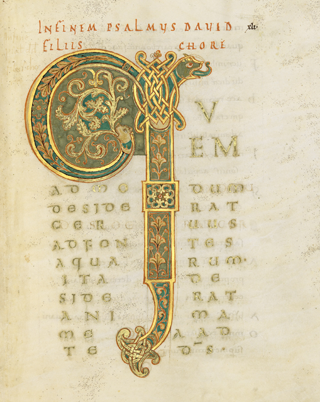 INFINEM PSALMUS DAVID xli·
FILIIS CHORE
Q V
EM
AD ME DUM
DESIDE RAT
CER UUS
AD FON TES
AQUA RUM·
ITA DE
SIDE RAT
ANI MA
ME A AD
TE D̄S·